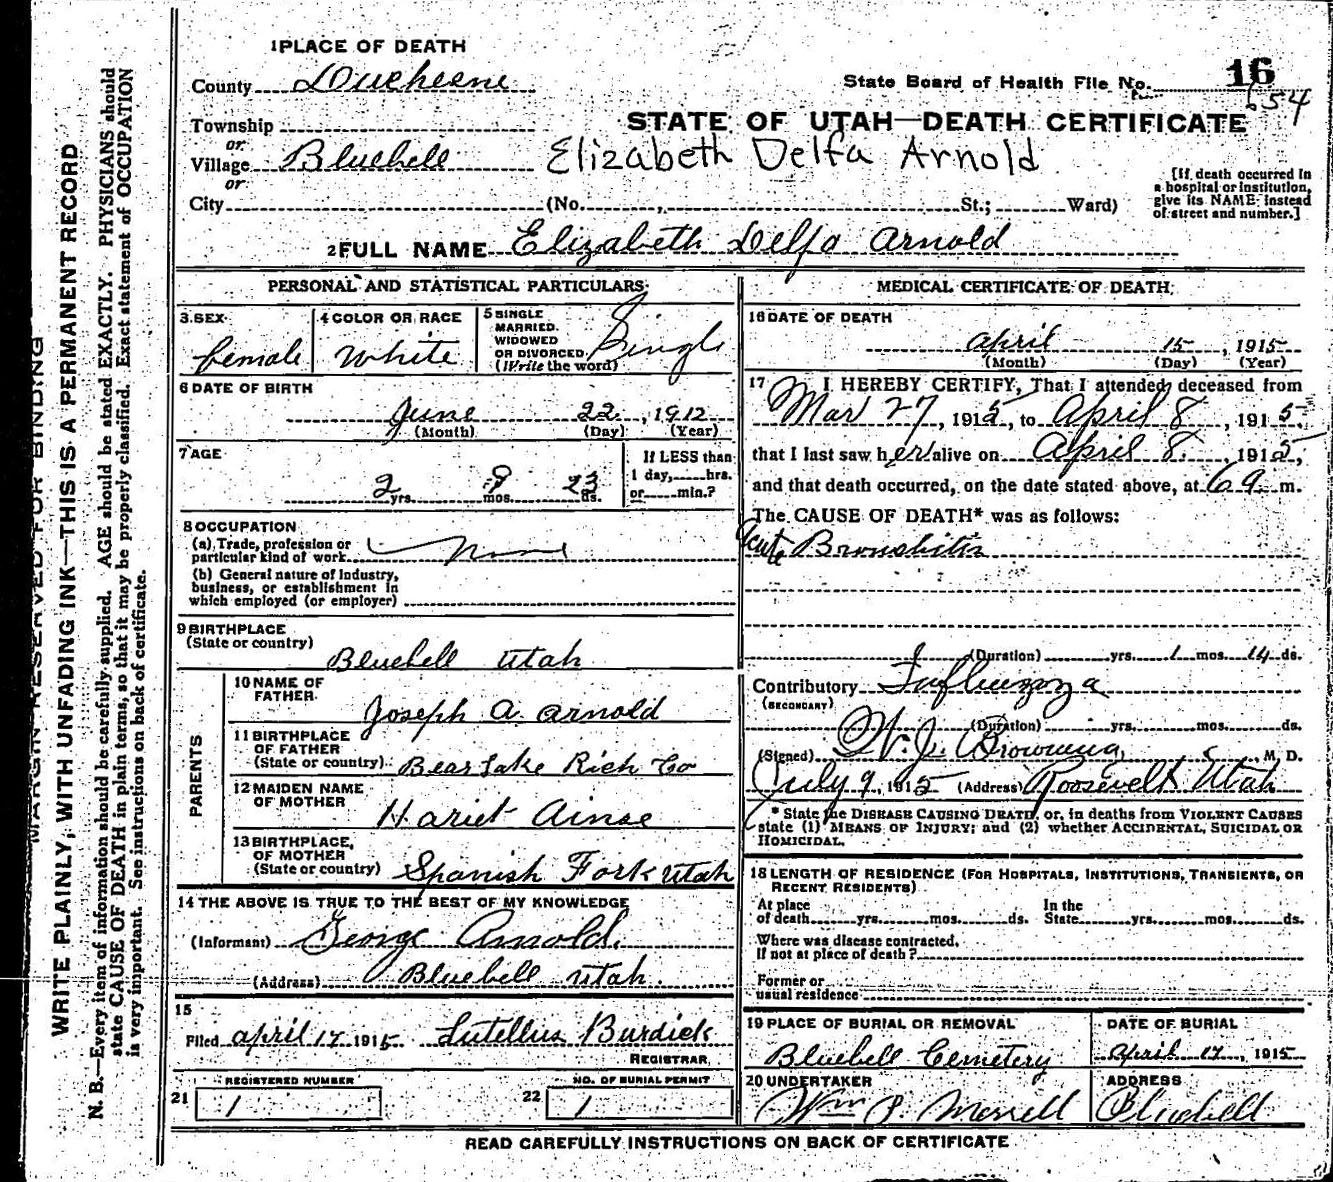 1 PLACE OF DEATH
County Duchesne
State Board of Health File No. 16
654
Township
or
Village Bluebell
or
City (No. , St.; Ward)
STATE OF UTAH—DEATH CERTIFICATE
Elizabeth Delfa Arnold
[If death occurred in
a hospital or institution,
give its NAME instead
of street and number.]
2 FULL NAME Elizabeth Delfa Arnold
PERSONAL AND STATISTICAL PARTICULARS
3 SEX
female
4 COLOR OR RACE
White
5 SINGLE
MARRIED.
WIDOWED
OR DIVORCED.
(Write the word)
Single
6 DATE OF BIRTH
June 22, 1912
(Month) (Day) (Year)
7 AGE
2 yrs. 9 mos. 23 ds.
If LESS than
1 day, hrs.
or min.?
8 OCCUPATION
(a) Trade, profession or
particular kind of work None
(b) General nature of industry,
business, or establishment in
which employed (or employer)
9 BIRTHPLACE
(State or country)
Bluebell Utah
PARENTS
10 NAME OF
FATHER
Joseph A. Arnold
11 BIRTHPLACE
OF FATHER
(State or country) Bear Lake Rich Co
12 MAIDEN NAME
OF MOTHER
Hariet Ainse
13 BIRTHPLACE,
OF MOTHER
(State or country) Spanish Fork Utah
14 THE ABOVE IS TRUE TO THE BEST OF MY KNOWLEDGE
(Informant) George Arnold.
(Address) Bluebell Utah.
15
Filed April 17 1915 Lutellus Burdick
REGISTRAR
21 REGISTERED NUMBER
1
22 NO. OF BURIAL PERMIT
1
MEDICAL CERTIFICATE OF DEATH
16 DATE OF DEATH
April 15, 1915
(Month) (Day) (Year)
17 I HEREBY CERTIFY, That I attended deceased from
Mar 27, 1915, to April 8, 1915
that I last saw her alive on April 8, 1915,
and that death occurred, on the date stated above, at 6 a. m.
The CAUSE OF DEATH* was as follows:
Acute Bronchitis
(Duration) yrs. 1 mos. 14 ds.
Contributory Influenza
(SECONDARY)
(Duration) yrs. mos. ds.
(Signed) W. J. Browning, M. D.
July 9, 1915 (Address) Roosevelt Utah
* State the DISEASE CAUSING DEATH, or, in deaths from VIOLENT CAUSES
state (1) MEANS OF INJURY; and (2) whether ACCIDENTAL, SUICIDAL OR
HOMICIDAL.
18 LENGTH OF RESIDENCE (FOR HOSPITALS, INSTITUTIONS, TRANSIENTS, OR
RECENT RESIDENTS)
At place
of death yrs. mos. ds.
In the
State yrs. mos. ds.
Where was disease contracted,
If not at place of death?
Former or
usual residence
19 PLACE OF BURIAL OR REMOVAL
Bluebell Cemetery
DATE OF BURIAL
April 17, 1915
20 UNDERTAKER
Wm P. Merrell
ADDRESS
Bluebell
READ CAREFULLY INSTRUCTIONS ON BACK OF CERTIFICATE
MARGIN RESERVED FOR BINDING
WRITE PLAINLY, WITH UNFADING INK—THIS IS A PERMANENT RECORD
N. B.—Every item of information should be carefully supplied. AGE should be stated EXACTLY. PHYSICIANS should
state CAUSE OF DEATH in plain terms, so that it may be properly classified. Exact statement of OCCUPATION
is very important. See instructions on back of certificate.